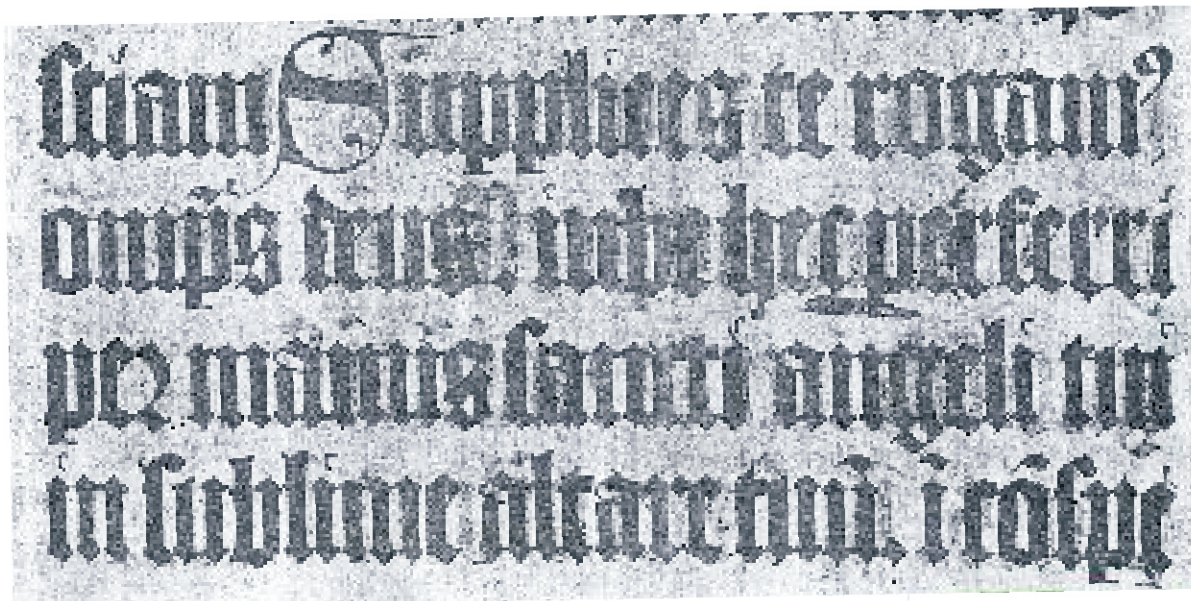 stiam Supplices te rogam⁹
om̄ps deus iube hec perferri
per manus sancti angeli tui
in sublime altare tuū. ī cōspc̄